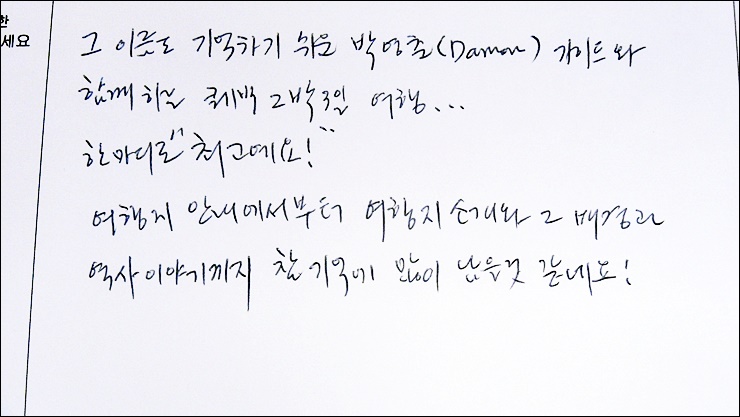 한
세요
그 이름도 기억하기 쉬운 박영출(Damon) 가이드와
함께하는 퀘벡 2박3일 여행...
한마디로 "최고예요!"
여행지 안내에서부터 여행지 소개와 그 배경과
역사이야기까지 참 기억에 많이 남을것 같네요!